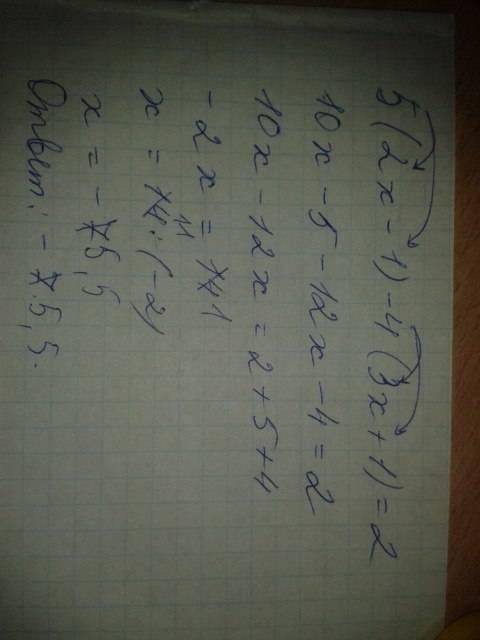 5(2x-1)-4(3x+1)=2
10x-5-12x-4=2
10x-12x=2+5+4
-2x=11
x=11:(-2)
x=-5,5
Ответ: -5,5.